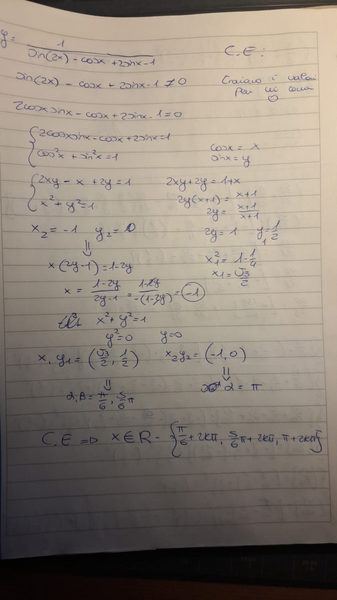 y = 1/(sin(2x) - cosx + 2sinx - 1) C.E:
sin(2x) - cosx + 2sinx - 1 ≠ 0 Craiamo i valori
per cui viene
0
2cosx sinx - cosx + 2sinx - 1 = 0
{ 2cosx sinx - cosx + 2sinx = 1
{ cos²x + sin²x = 1 cosx = x
sinx = y
{ 2xy - x + 2y = 1 2xy + 2y = 1 + x
{ x² + y² = 1 2y(x+1) = x+1
2y = (x+1)/(x+1)
x₂ = -1 y₂ = 0 2y = 1 y₁ = 1/2
⇓
x(2y-1) = 1-2y x₁² = 1 - 1/4
x₁ = √3/2
x = (1-2y)/(2y-1) = (1-2y)/-(1-2y) = -1
x² + y² = 1
y² = 0 y = 0
x₁ y₁ = (√3/2, 1/2) x₂ y₂ = (-1, 0)
⇓ ⇓
α, β = π/6, 5/6 π α = π
C.E ⇒ x ∈ R - {π/6 + 2kπ, 5/6 π + 2kπ, π + 2kπ}